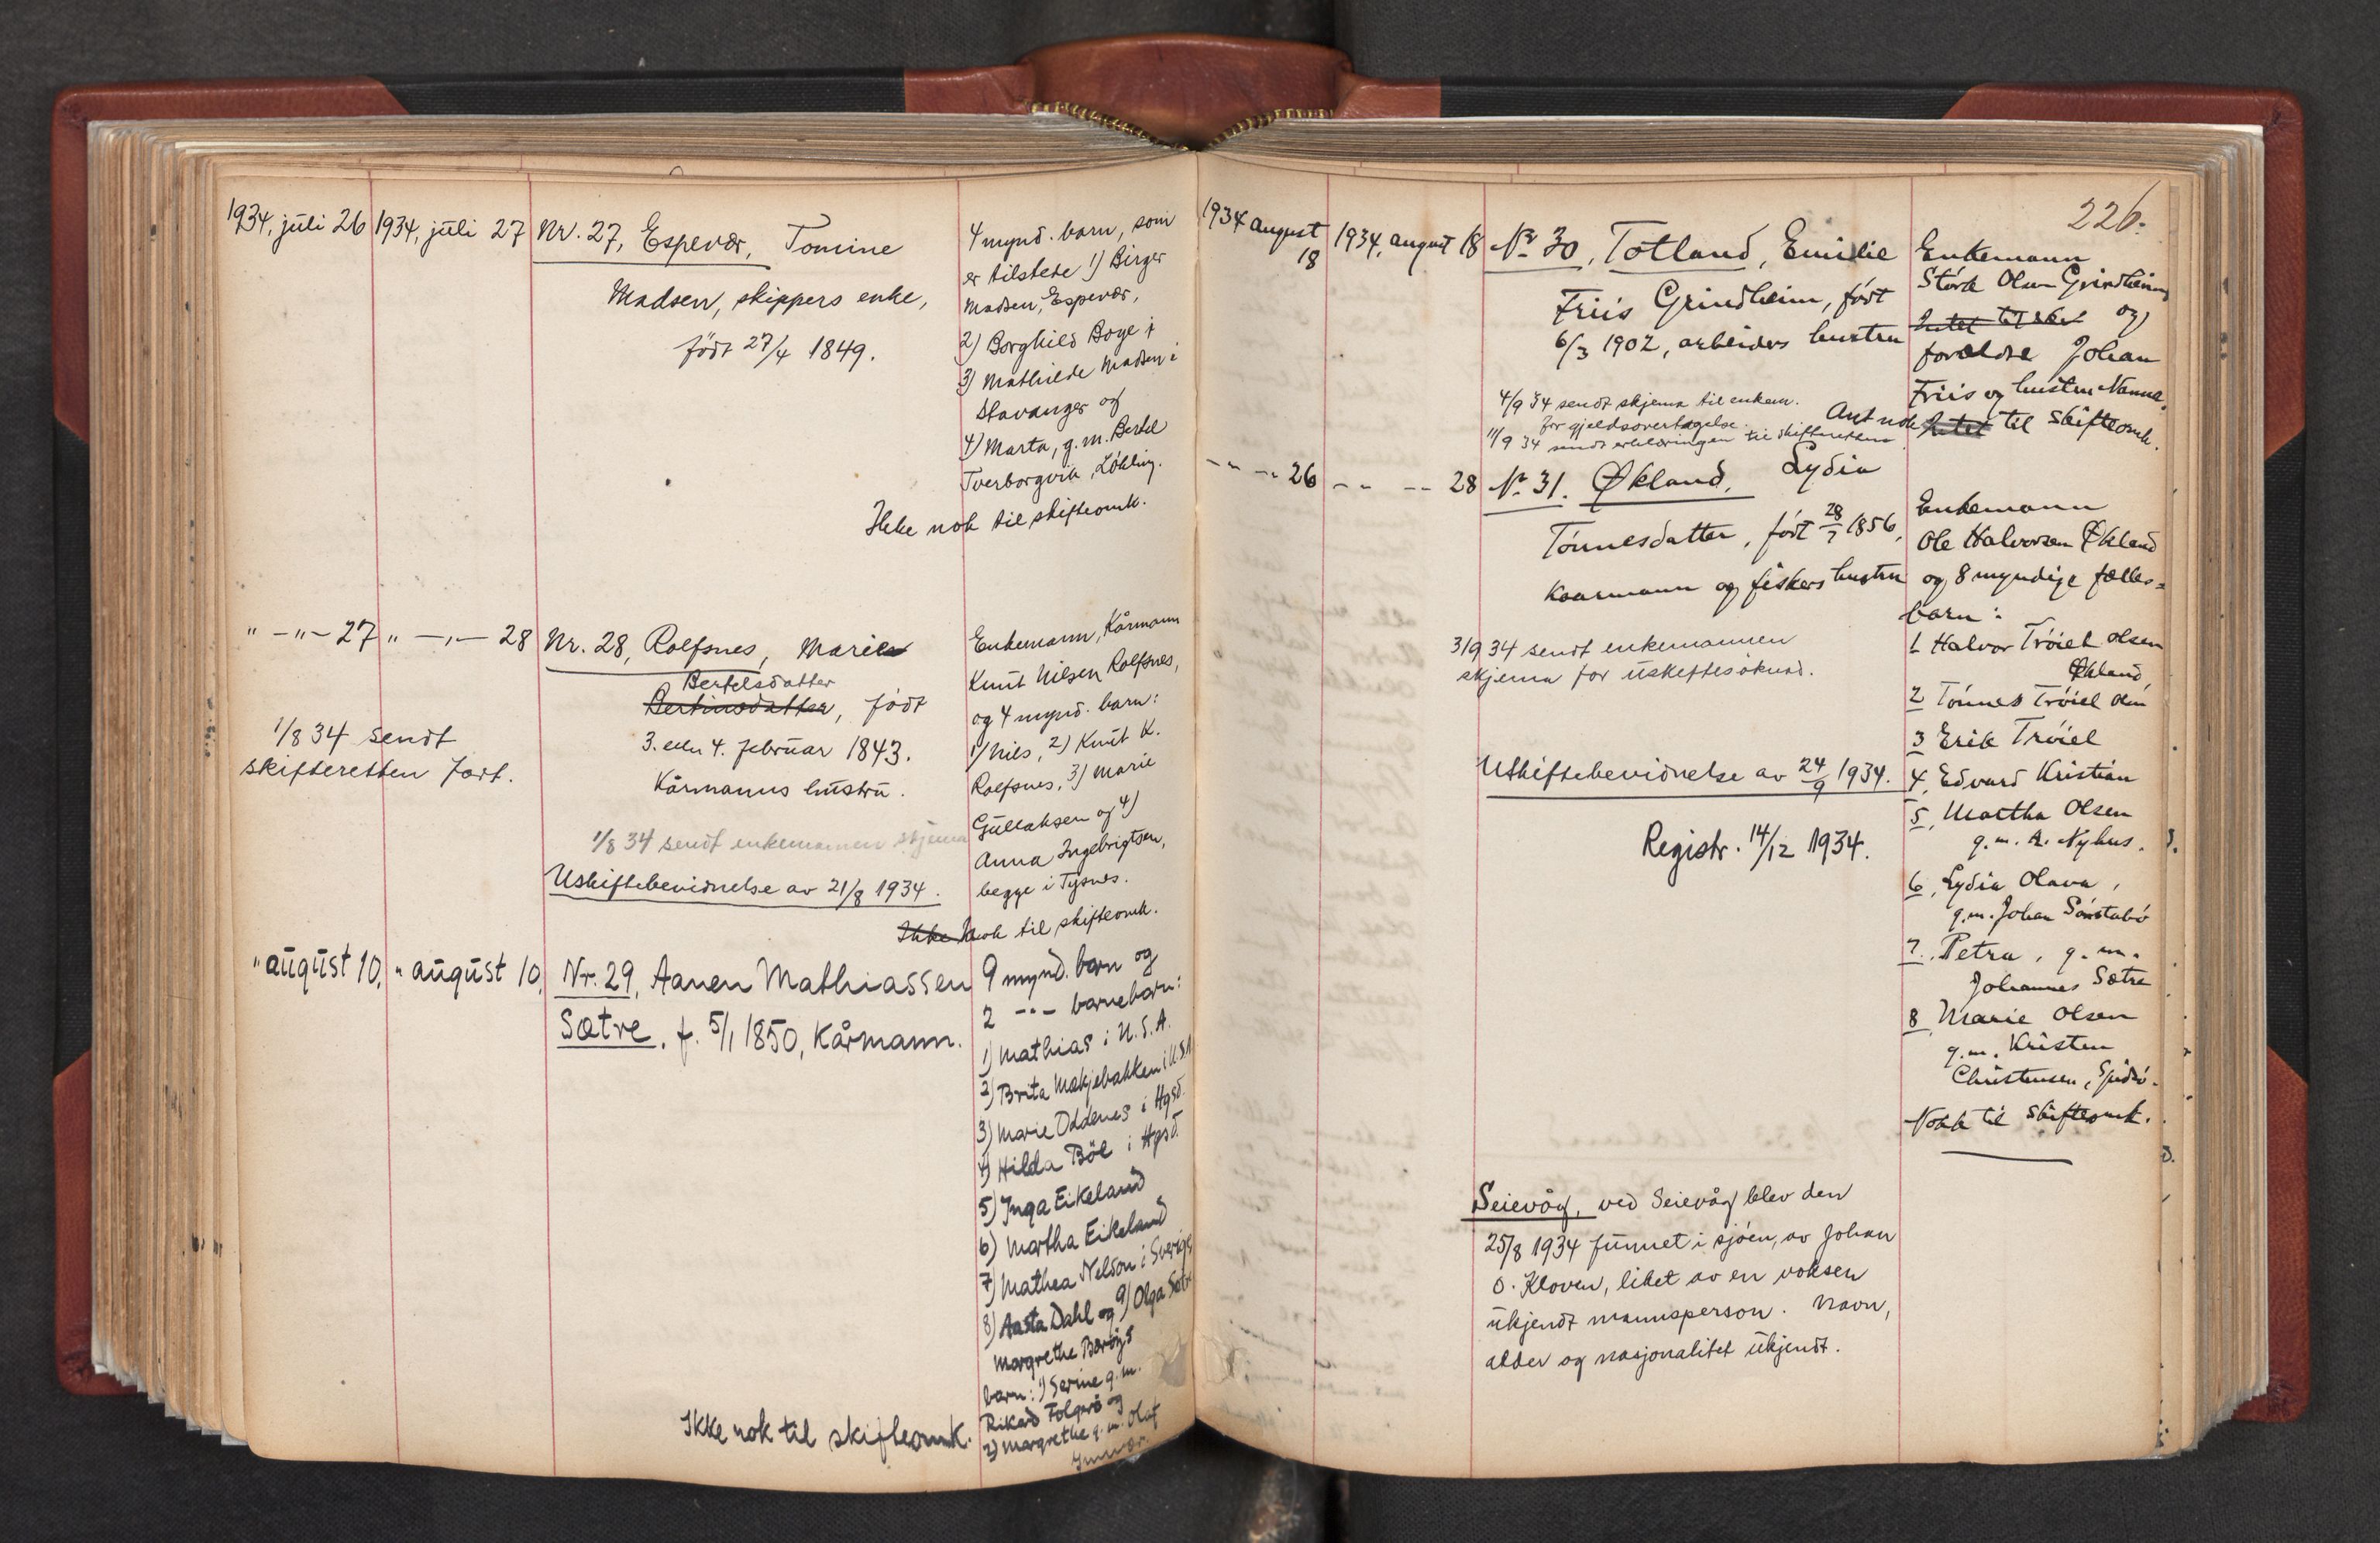 1934, juli 26
1934, juli 27
Nr. 27, Espevær, Tomine
Madsen, skippers enke,
født 27/4 1849.
4 mynd. barn, som
er tilstede 1) Birger
Madsen, Espevær,
2) Borghild Boge i
3) Mathilde Madsen i
Stavanger og
4) Marta, g.m. Bertel
Tverborgvik, Løkling.
Ikke nok til skifteomk.
" -"- 27
" -"- 28
Nr. 28, Rolfsnes, Marie
Bertelsdatter
Bertinsdatter, født
3. eller 4. februar 1843.
Kårmanns hustru.
1/8 34 sendt
skifteretten fort.
1/8 34 sendt enkemannen skjema
Uskiftebevidnelse av 21/8 1934.
Enkemann, Kårmann
Knut Nilsen Rolfsnes,
og 4 mynd. barn:
1) Nils, 2) Knut K.
Rolfsnes, 3) Marie
Gullaksen og 4)
Anna Ingebrigtsen,
begge i Tysnes.
Ikke Nok til skifteomk.
" august 10,
" august 10,
Nr. 29, Aanen Mathiassen
Sætre, f. 5/1 1850, Kårmann.
9 mynd. barn og
2 -"- barnebarn:
1) Mathias i U.S.A.
2) Brita Mækjebakken i U.S.A
3) Marie Oddenes i Hgsd.
4) Hilda Böe i Hgsd.
5) Inga Eikeland
6) Martha Eikeland
7) Mathea Nelson i Sverige
8) Aasta Dahl og 9) Olga Sætre
Margrethe Barøys
barn: 1) Serine g.m.
Rikard Folgerö og
2) Margrethe g.m. Olaf
Ikke nok til skifteomk.
226.
1934 august
18
1934, august 18
Nr 30, Totland, Emilie
Friis Grindheim, født
6/3 1902, arbeiders hustru
4/9 34 sendt skjema til enkem.
for gjeldsovertagelse.
11/9 34 sendt erklæringen til skifteretten
Enkemann
Stork Olsen Grindheim
Intet til skif og
forældre Johan
Friis og hustru Nanna.
Ant nok Intet til Skifteomk.
-"- -"- 26
-"- -"- 28
Nr 31. Økland, Lydia
Tønnesdatter, født 28/7 1856,
Kaarmann og fiskers hustru
3/9 34 sendt enkemannen
skjema for uskiftesøknad.
Uskiftebevidnelse av 24/9 1934.
Registr. 14/12 1934.
Enkemann
Ole Halvorsen Økland
og 8 myndige fælles=
barn:
1 Halvor Trøiel Olsen
Økland
2 Tönnes Trøiel Olsn
3 Erik Trøiel
4, Edvard Kristian
5, Martha Olsen
g.m. A. Nyhus.
6, Lydia Olava,
g.m. Johan Sørstabø
7, Petra, g.m.
Johannes Sætre
8, Marie Olsen
g.m. Kristen
Christensen,
Nokk til skifteomk.
Seievåg, ved Seievåg blev den
25/8 1934 funnet i sjøen, av Johan
O. Kloven, liket av en voksen
ukjendt mannsperson. Navn,
alder og nasjonalitet ukjendt.